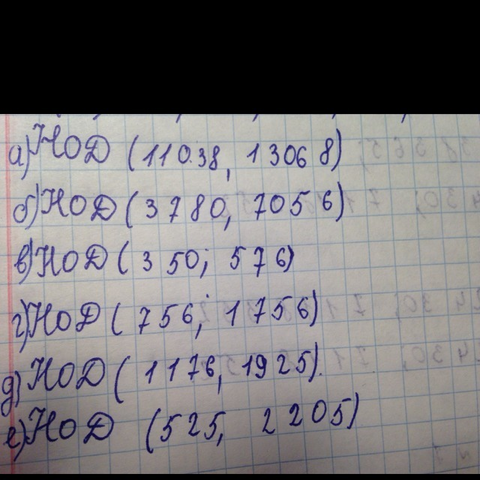 а) НОД (11038, 13068)
б) НОД (3780, 7056)
в) НОД (350; 576)
г) НОД (756; 1756)
д) НОД (1176, 1925).
е) НОД (525, 2205)